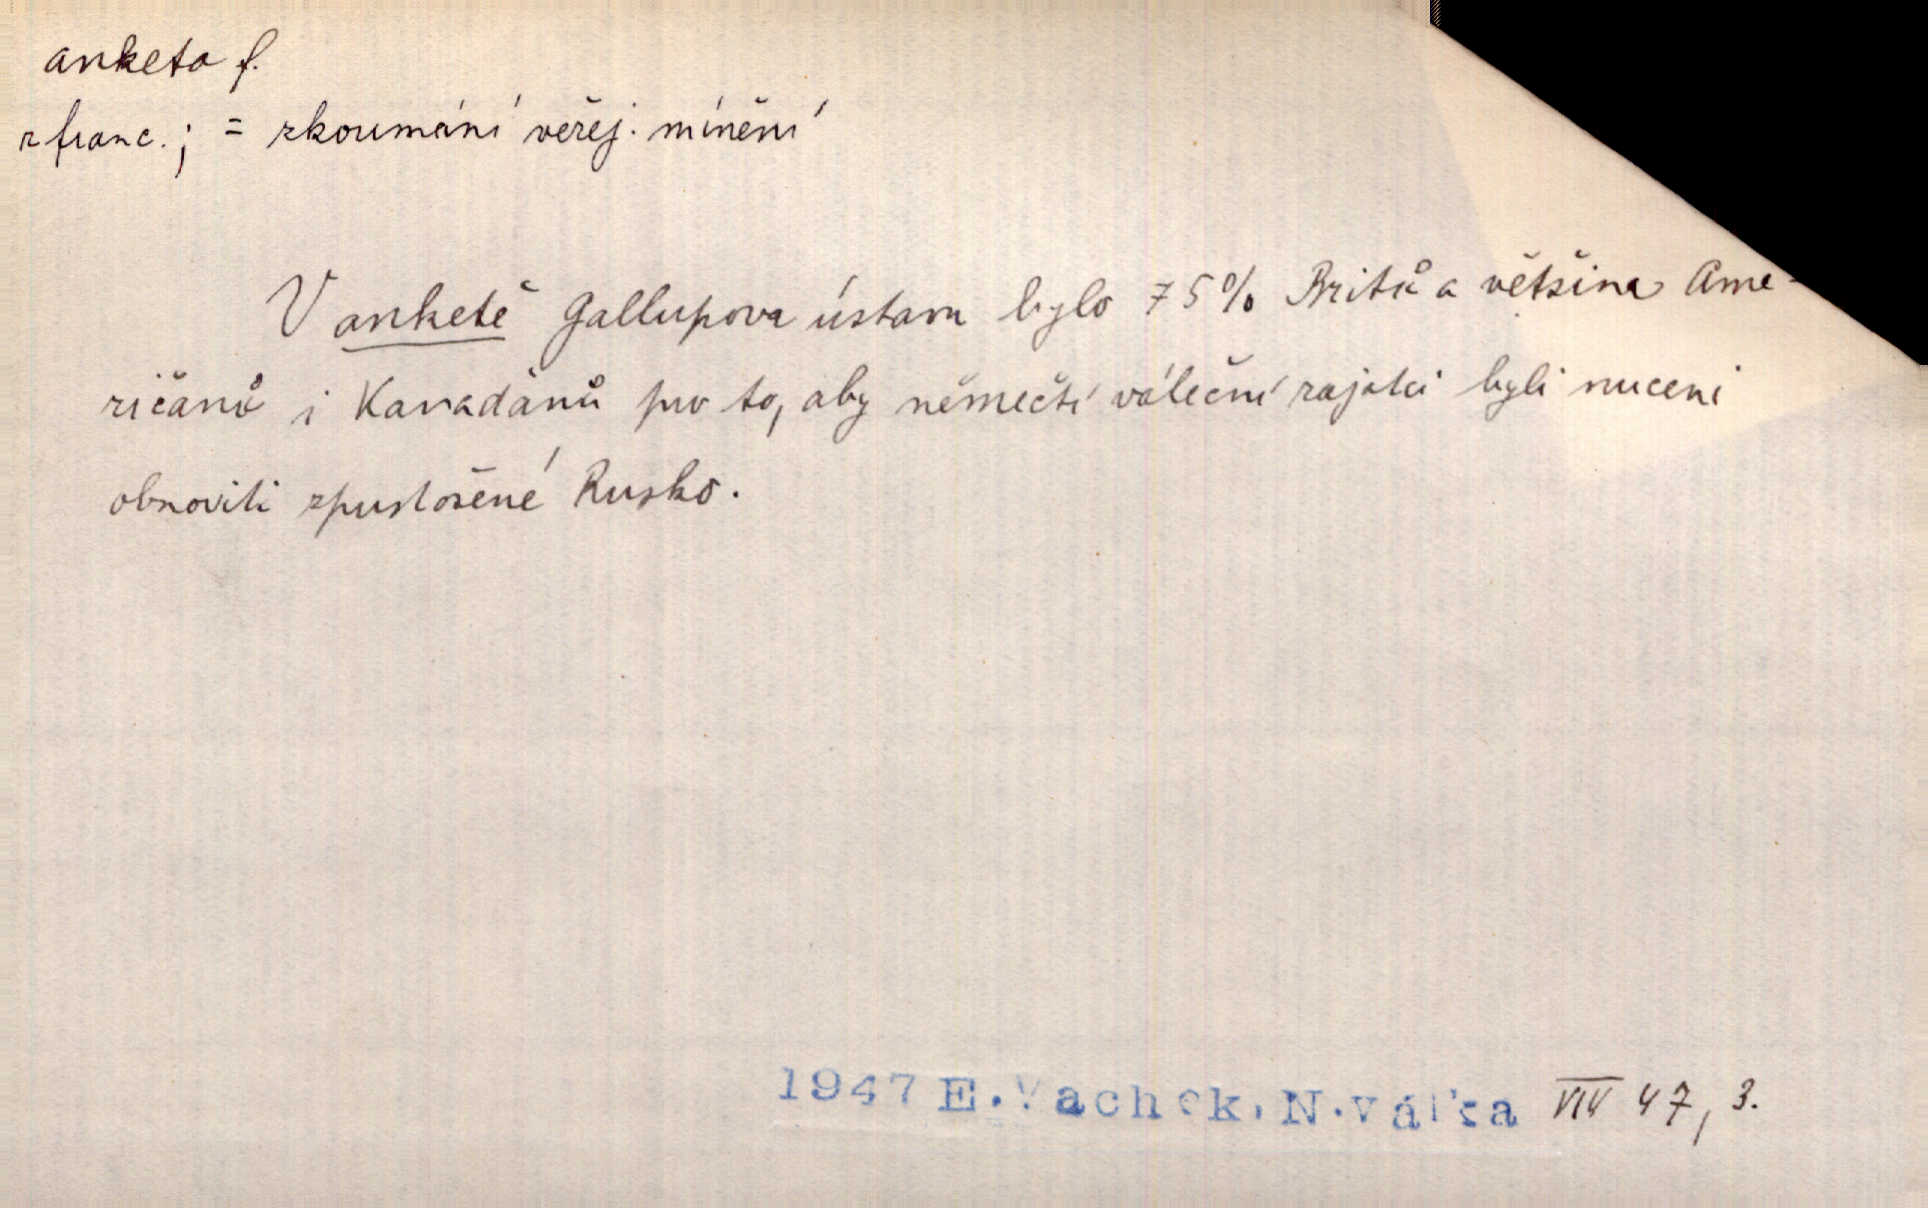 anketa f.
z franc.; = zkoumání veřej. mínění
V anketě Gallupova ústavu bylo 75% Britů a většina Ame-
ričanů i Kanaďanů pro to, aby němečtí váleční zajatci byli nuceni
obnoviti zpustošené Rusko.
1947 E. Vachek, N. válka VIII 47, 3.